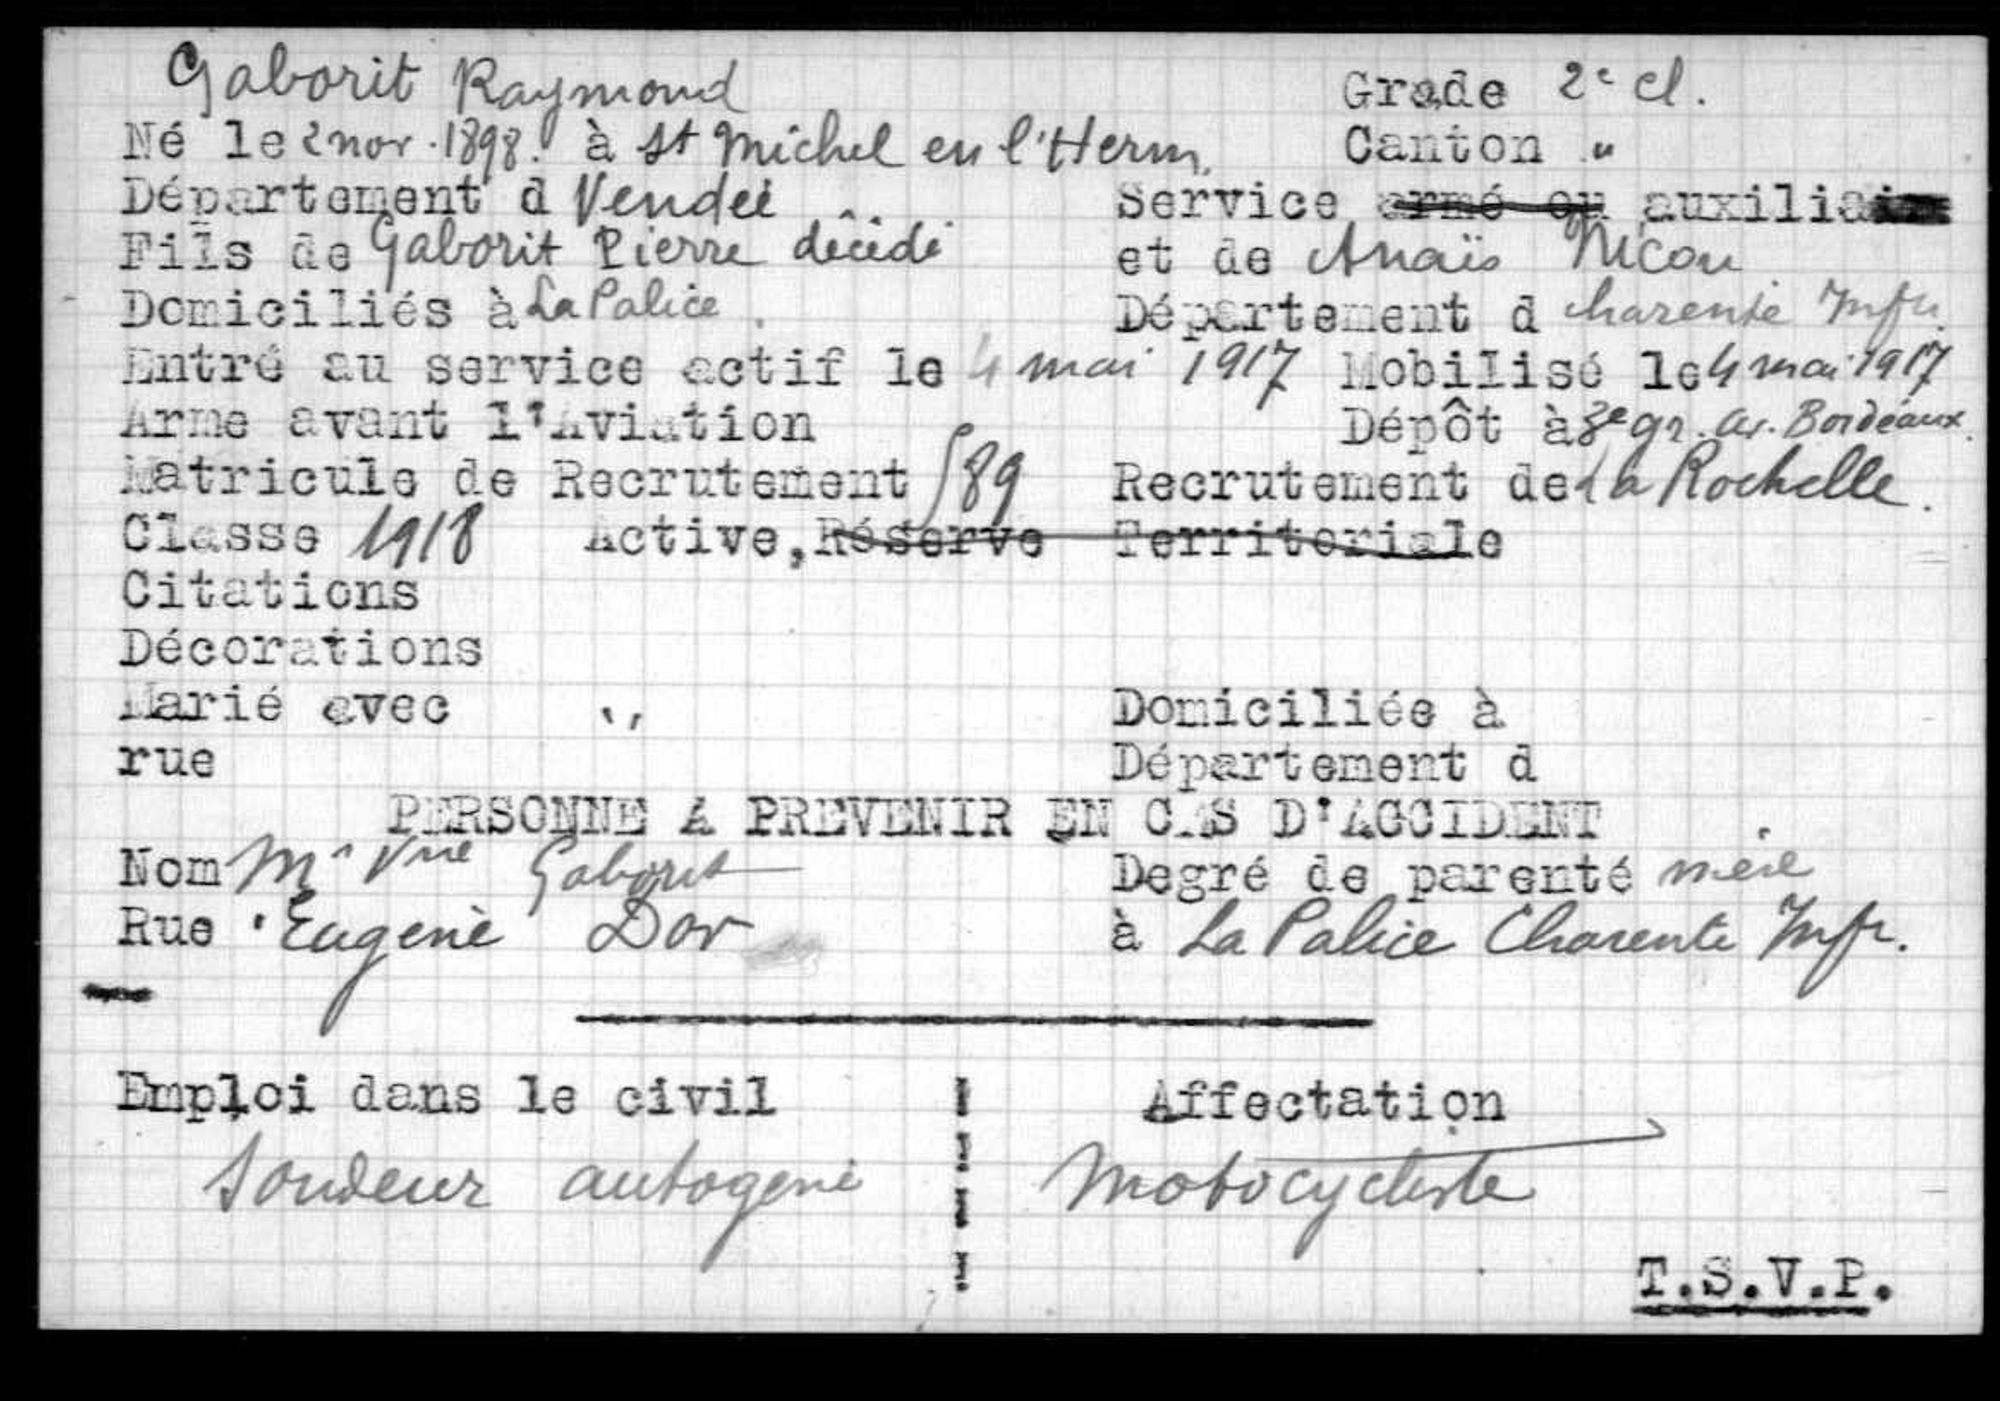 Gaborit Raymond Grade 2e cl.
Né le 2 nov. 1898. à St Michel en l'Herm. Canton "
Département d Vendée Service armé ou auxiliaire
Fils de Gaborit Pierre décédé et de Anaïs Nicou
Domiciliés à La Palice. Département d Charente Infre.
Entré au service actif le 4 mai 1917 Mobilisé le 4 mai 1917
Arme avant l'Aviation Dépôt à gr. av. Bordeaux.
Matricule de Recrutement 589 Recrutement de La Rochelle.
Classe 1918 Active, Réserve Territoriale
Citations
Décorations
Marié avec " Domiciliée à
rue Département d
PERSONNE A PREVENIR EN CAS D'ACCIDENT
Nom Vve Gaborit Degré de parenté mère
Rue Eugène Dor à La Palice Charente Infr.
Emploi dans le civil Affectation
Soudeur autogène Motocycliste
T.S.V.P.